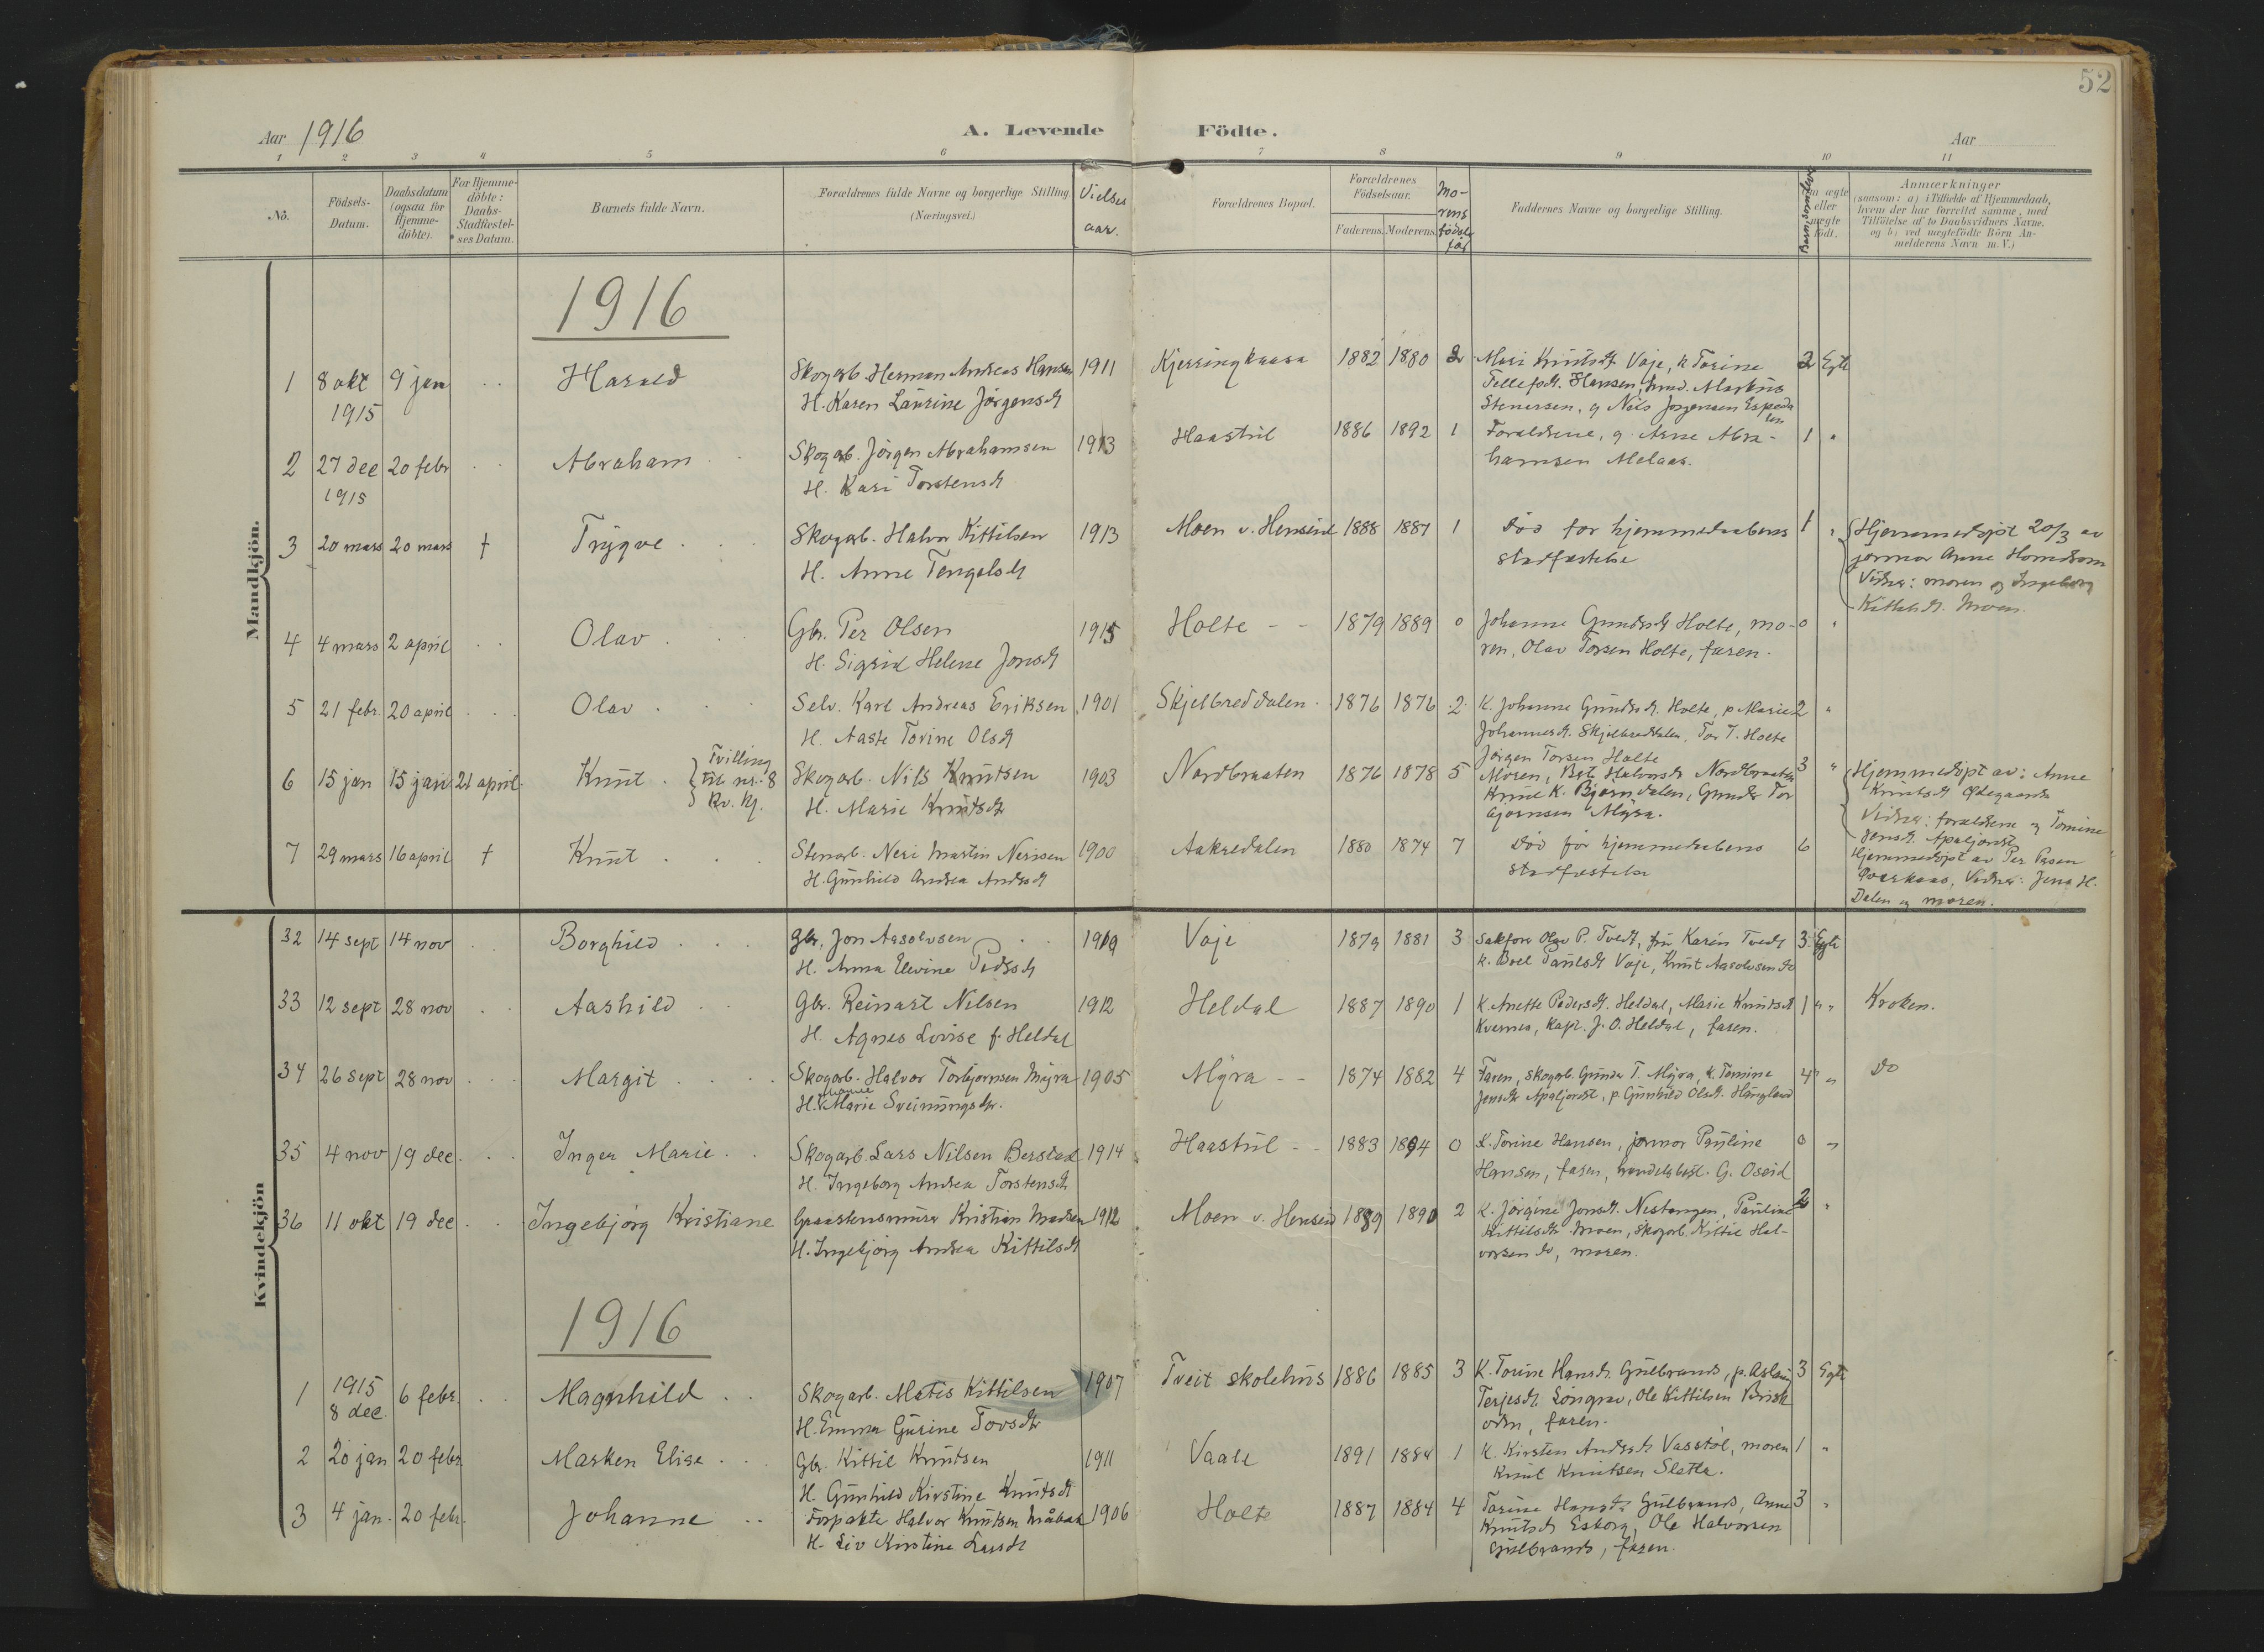 52
Aar 1916
A. Levende Födte.
Aar
1 2 3 4 5 6 7 8 9 10 11
No.
Födsels-Datum.
Daabsdatum (ogsaa for Hjemme-döbte).
For Hjemme-döbte: Daabs-Stadfæstel-ses Datum.
Barnets fulde Navn.
Forældrenes fulde Navne og borgerlige Stilling. (Næringsvei.)
Vielses aar.
Forældrenes Bopæl.
Forældrenes Födselsaar.
Faderens. Moderens.
Mo-rens födsl för
Faddernes Navne og borgerlige Stilling.
Om ægte eller uægte födt.
Anmærkninger
(saasom: a) i Tilfælde af Hjemmedaab,
hvem der har forrettet samme, med
Tilföielse af to Daabsvidners Navne.
og b) ved uægtefödte Börn An-
melderens Navn m. V.)
Mandkjön.
1916
1 8 okt 9 jan Harald Skogarb. Herman Andreas Hansen 1911 Kjerringkaasa 1882 1880 2 Mari Knutsdt Vaje, k Torine 2 Egte
1915 H. Karen Laurine Jörgensdt Tellefsdt. Hansen, Markus
Stenersen, g Nils Jörgensen Espeda
len
2 27 dec 20 febr Abraham Skogarb. Jörgen Abrahamsen 1913 Haastul 1886 1892 1 Foreldrene, g. Arne Abra- 1 "
1915 H. Kari Torstensdt hamsen Melaas.
3 20 mars 20 mars † Trygve Skogarb. Halvor Kittilsen 1913 Moen v. Henseid 1888 1887 1 Död for hjemmedaabens 1 " Hjemmedöpt 20/3 av
H. Anne Tengelsdt stadfæstelse jormor Anne Homdrom
Vidner: moren og Ingeborg
Kittilsdt. Moen.
4 4 mars 2 april Olav Gbr. Per Olsen 1915 Holte 1879 1889 0 Johanne Gundersdt Holte, mo- 0 "
H. Sigrid Helene Jonsdt ren, Olav Torsen Holte, faren.
5 21 febr. 20 april Olav Selv. Karl Andreas Eriksen 1901 Skjelbreddalen 1876 1876 2 K. Johanne Gundersdt. Holte, p Marie 2 "
H. Aaste Tovine Olsdt Johannesdt. Skjelbreddalen, Tor T. Holte
Jörgen Torsen Holte
6 15 jan 15 jan 21 april Knut Tvilling til nr. 8 Kv. Kj. Skogarb. Nils Knutsen 1903 Nordbraaten 1876 1878 5 Moren, Halvorsdt Nordbraaten 3 " Hjemmedöpt av: Anne
H. Marie Knutsdt Knut K. Bjorndalen, Gunder Tor Knutsdt Ödegaarden
gjörnsen Myra. Vidner: forældrene og Tomine
Jensdt. Apaljordet
7 29 mars 16 april † Knut Stenarb. Neri Martin Nerisen 1900 Aakredalen 1880 1874 7 Död för hjemmedaabens 6 Hjemmedöpt av Per
H. Gunhild Andrea Andersdt stadfæstelse Vidner: Jens H.
Dalen og moren.
Kvindekjön
32 14 sept 14 nov Borghild Gbr. Jon Aasolvsen 1909 Vaje 1879 1881 3 Sakförer Olav P. Tvedt, fru Karen Tvedt 3 Egte
H. Anna Elevine Pedersdt k. Boel Paulsdt Vaje, Knut Aasolvsen do
33 12 sept 28 nov Aashild Gbr. Reinart Nilsen 1912 Heldal 1887 1890 1 K. Anette Pedersdt. Heldal, Marie Knutsdt 1 " " Kroken.
H. Agnes Lovise f. Heldal Kvernes, Kapt. J. O. Heldal, faren.
34 26 sept 28 nov Margit Skogarb. Halvor Torbjørnsen Myra 1905 Myra 1874 1882 4 Faren, skogarb. Gunder T. Myra, k. Tomine 4 " do
H. Marie Sveinungsdtr. Jensdtr Apaljordet, p. Gunhild Olsdt. Haugland
35 4 nov 19 dec. Inger Marie Skogarb. Lars Nilsen Berstad 1914 Haastul 1883 1894 0 K. Torine Hansen, jormor Pauline 0 "
H. Ingeborg Andrea Torstensdt Hansen, faren, handelsbest. G. Oseid
36 11 okt 19 dec Ingebjörg Kristiane Graastensmurer Kristian Madsen 1912 Moen v. Henseid 1889 1890 2 K. Jörgine Jonsdt. Nestangen, Pauline 2 "
H. Ingebjörg Andrea Kittilsdt Kittilsdt Moen, skogarb. Kittil Hal-
vorsen do, moren.
1916
1 1915 8 dec. 6 febr. Magnhild Skogarb. Matis Kittilsen 1907 Tveit skolehus 1886 1885 3 K. Torine Hansdt. Gulbrands, p. Aslaug 3 Egte
H. Emma Gurine Tovsdtr Terjesdt. Ole Kittilsen
faren.
2 20 jan 20 febr. Marken Elise Gbr. Kittil Knutsen 1911 Vaale 1891 1884 1 K. Kirsten Andersdt Vasstöl, moren 1 "
H. Gunhild Kirstine Knutsdt Knut Knutsen Sletta.
3 4 jan. 20 febr. Johanne Forpakter Halvor Knutsen 1906 Holte 1887 1884 4 Torine Hansdt. Gulbrands, Anne 3 "
H. Liv Kirstine Larsdt Knutsdt Esborg, Ole Halvorsen
Gulbrands, faren.